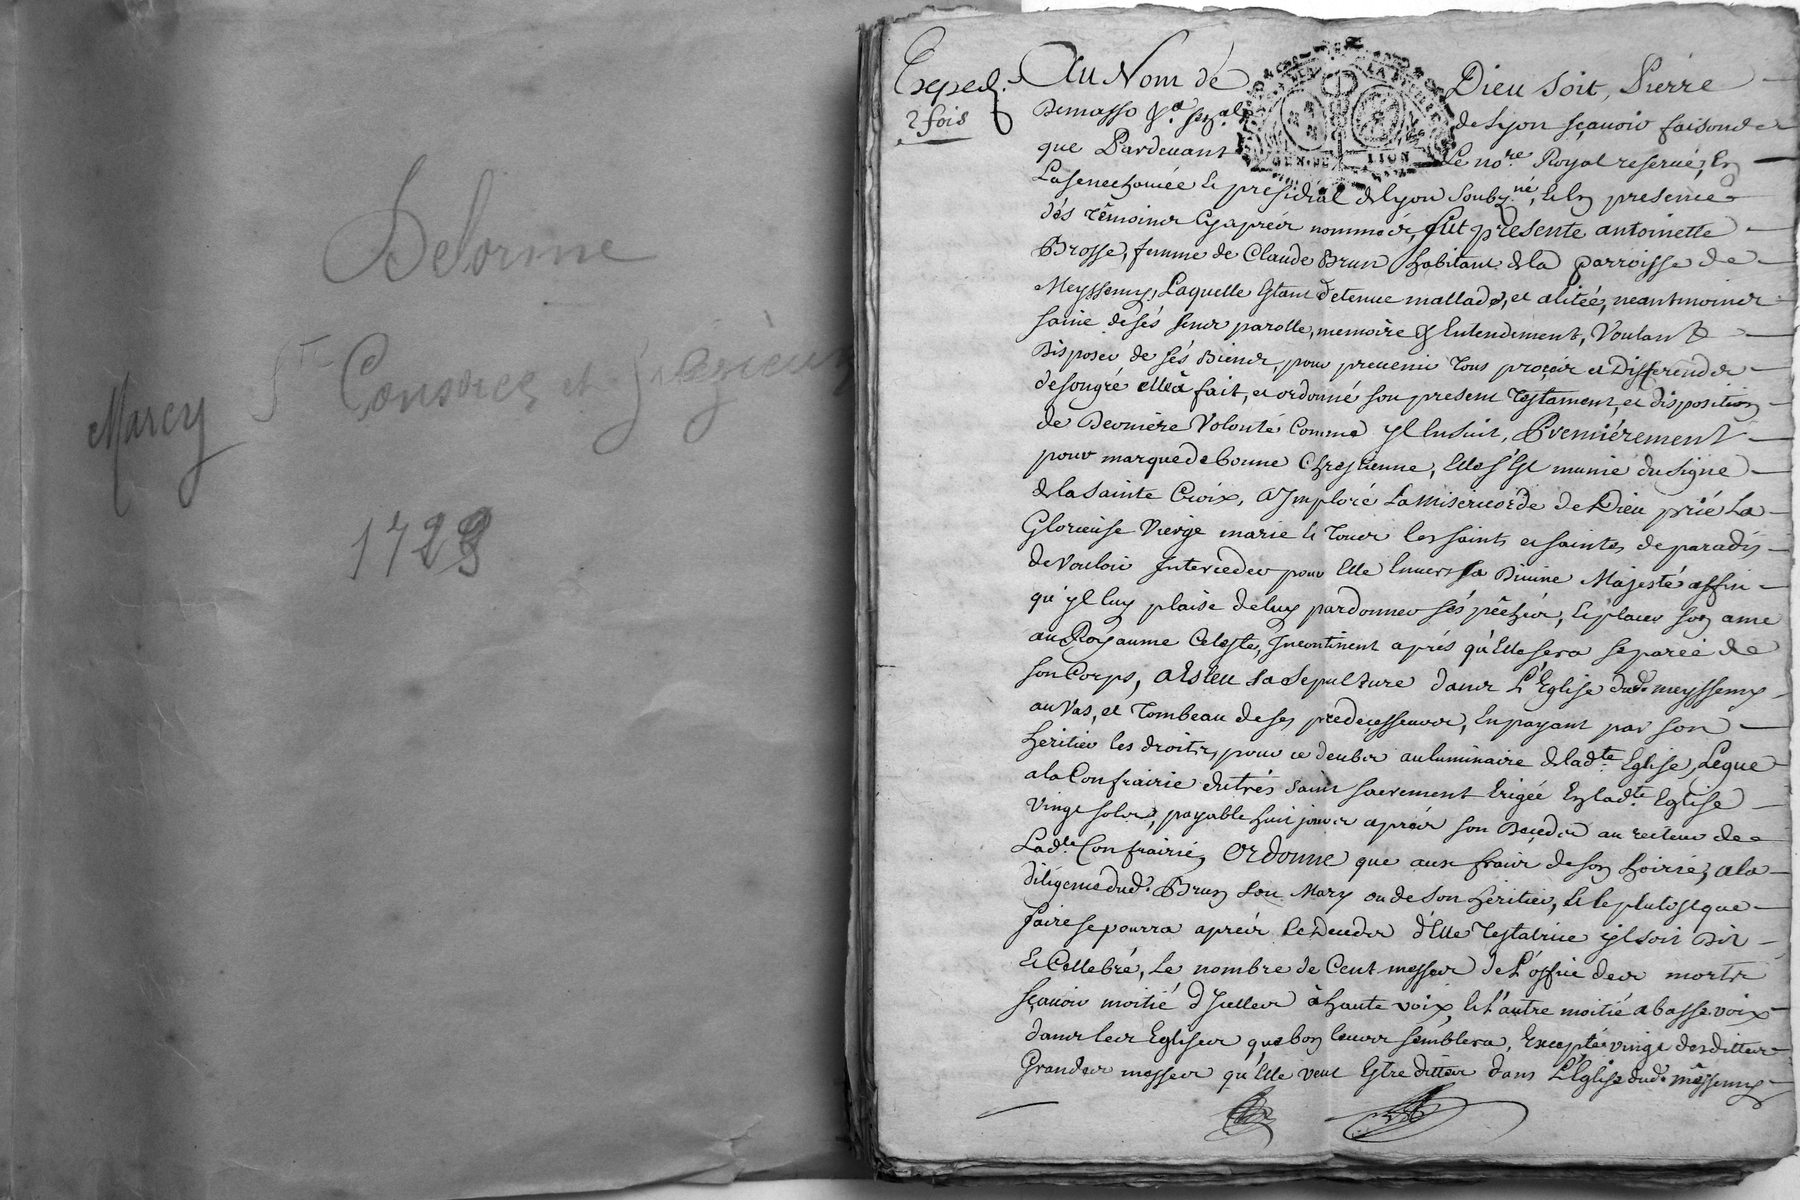 Delorme
Ste Consorce et Grézieux
Marcy
1723
Exped.
2 fois
Au Nom de Dieu Soit, Pierre
Demasso &a. senal. de Lyon sçavoir faisons
que Pardevant Le nore. Royal reservé, En
La senechaucée & presidial de Lyon soubzné., & En presence
dés témoins Cy aprés nommés, fut présente antoinette
Brosse, femme de Claude Brun habitant de la parroisse de
Meyssemy, Laquelle Estant détenue mallade, et alitée, neantmoins
saine de sés sens parolle, memoire & Entendement, Voulant
Disposer de sés Biens, pour prevenir tous procés et Differends
de son gré elle à fait, et ordonné son present testament, et disposition
de Derniére Volonté Comme yl Ensuit, Premiérement
pour marque de bonne Chrestienne, Elle s'Est munie du signe
de la Sainte Croix, a Imploré La misericorde de Dieu prié La
Glorieuse Vierge marie & tous les saints et saintes de paradis
de Vouloir Interceder pour Elle Envers sa Divine Majesté affin
qu'yl luy plaise de luy pardonner sés péchés, & placer son ame
au Royaume Celeste, Incontinent aprés qu'Elle sera separée de
son Corps, a Esleu sa Sepulture dans L'Eglise dud. meyssemy
au Vas, et tombeau de ses predecesseurs, En payant par son
heritier les droits, pour ce deubs au luminaire de ladte. Eglise, Legue
a la Confrairie du trés saint sacrement Erigée En ladte. Eglise
Vingt sols, payable huit jours aprés son Decéds au recteur de
Ladte. Confrairie, Ordonne que aux frais de son hoirie, a la
diligence dud. Brun son Mary ou de son heritier, & le plutost que
faire se pourra aprés le deceds d'Elle testatrice yl soit Dit
& Cellebré, le nombre de Cent messes de L'office des morts
sçavoir moitié d'Icelles à haute voix, & l'autre moitié a basse voix
dans les Eglises que bon leurs semblera, Excepté vingt desdittes
Grandes messes qu'Elle veut Estre dittes dans L'Eglise dud. meyssemy